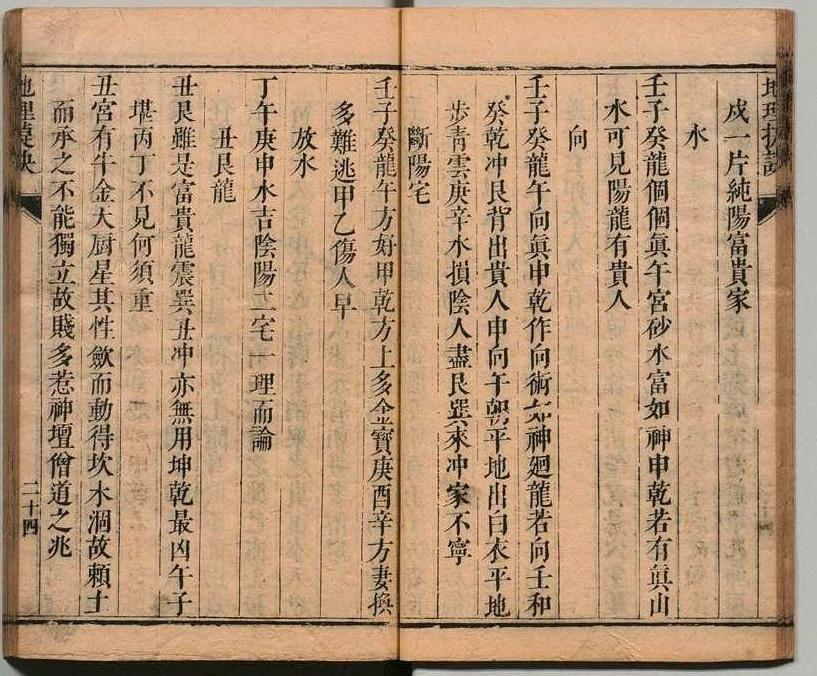 地理
戌一片純陽富貴家
水
壬子癸龍個個眞午宮砂水富如神申乾若有眞山
水可見陽龍有貴人
向
壬子癸龍午向眞申乾作向術如神廻龍若向壬和
癸乾冲艮背出貴人申向午朝平地出白衣平地
步青雲庚辛水損陰人盡艮巽來冲家不寧
斷陽宅
壬子癸龍午方好甲乾方上多金寶庚酉辛方妻換
多難逃甲乙傷人早
放水
丁午庚申水吉陰陽二宅一理而論
丑艮龍
丑艮雖是富貴龍震巽丑冲亦無用坤乾最凶午子
堪丙丁不見何須重
丑宮有牛金大厨星其性歛而動得坎水涸故賴土
而承之不能獨立故賤多惹神壇僧道之兆
地理
二十四